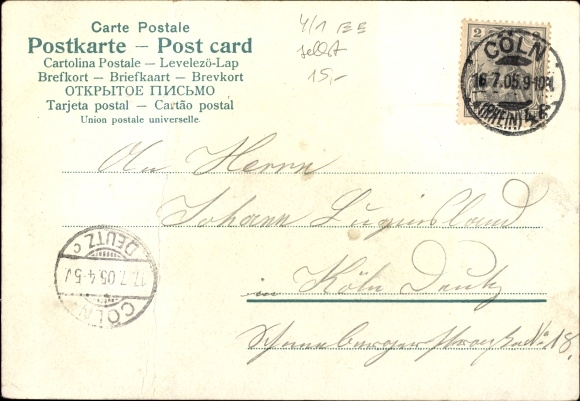 Carte Postale
Postkarte – Post card
Cartolina Postale – Levelező-Lap
Brefkort – Briefkaart – Brevkort
ОТКРЫТОЕ ПИСЬМО
Tarjeta postal – Cartão postal
Union postale universelle.
4/1 EE
selbst
15,-
2
CÖLN
16.7.05.9-10
(RHEIN) 4
An Herrn
Johann Luginsland
in Köln Deutz
Arnsbergerstraße No 18.
DEUTZ c
17.7.05.4-5
CÖLN